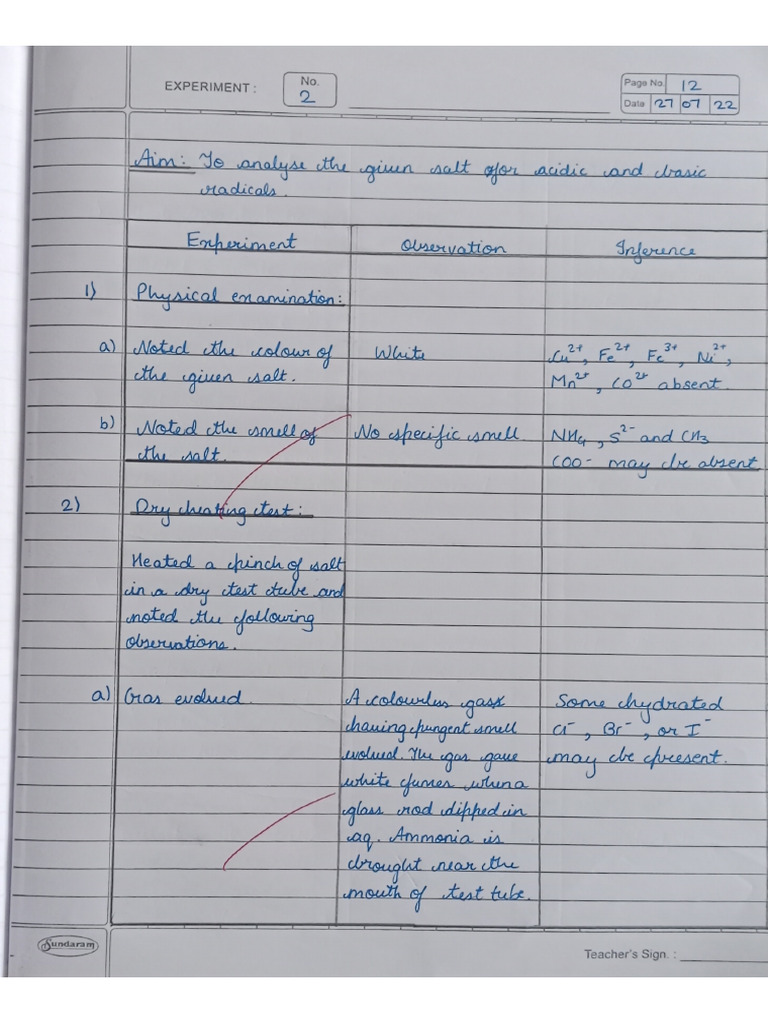 EXPERIMENT : No. 2
Page No. 12
Date 27 07 22
Aim: To analyse the given salt for acidic and basic
radicals.
Experiment Observation Inference
1) Physical examination:
a) Noted the colour of White Cu2+, Fe2+, Fe3+, Ni2+,
the given salt. Mn2+, CO2+ absent.
b) Noted the smell of No specific smell. NH4, S2- and CH3
the salt. COO- may be absent
2) Dry heating test:
Heated a pinch of salt
in a dry test tube and
noted the following
observations.
a) Gas evolved. A colourless gas Some hydrated
having pungent smell Cl-, Br-, or I-
evolved. The gas gave may be present.
white fumes when a
glass rod dipped in
aq. Ammonia is
brought near the
mouth of test tube.
Sundaram
Teacher's Sign. :